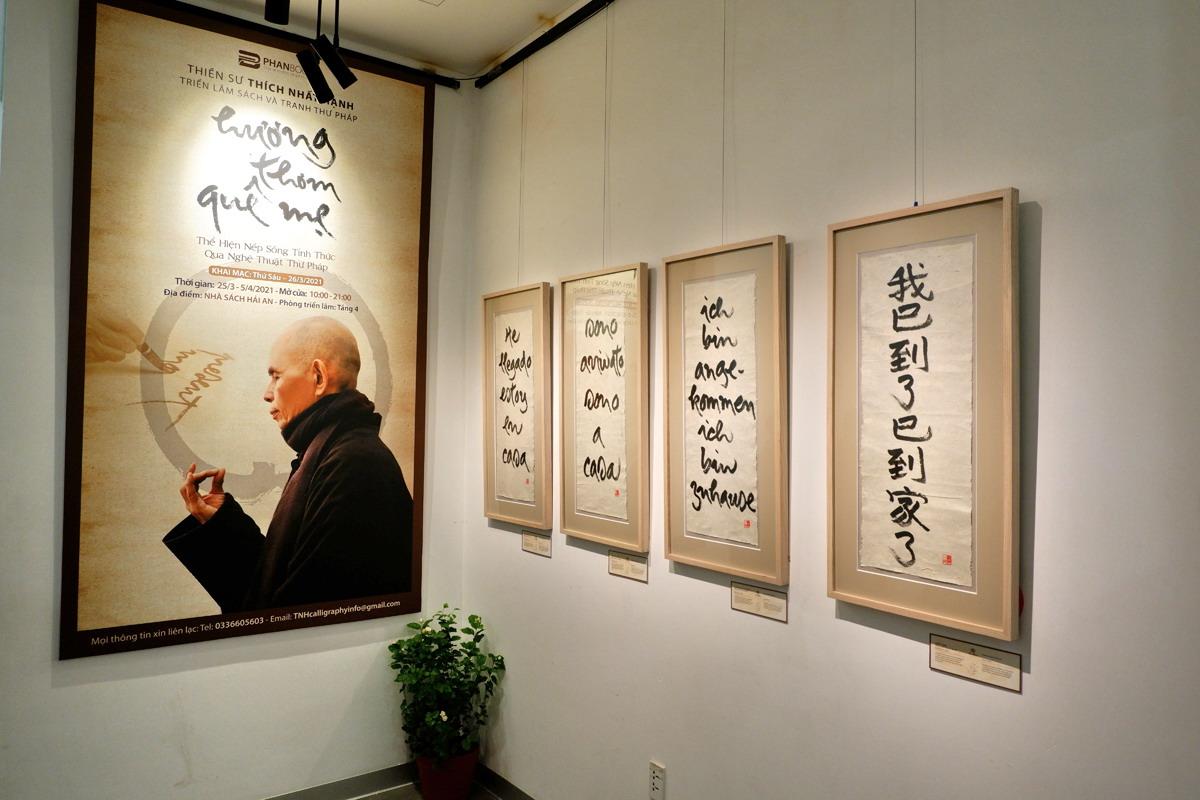 THIỀN SƯ THÍCH NHẤT HẠNH
TRIỂN LÃM SÁCH VÀ TRANH THƯ PHÁP
hương
thơm
quê mẹ
Thể Hiện Nếp Sống Tỉnh Thức
Qua Nghệ Thuật Thư Pháp
KHAI MẠC: Thứ Sáu – 26/3/2021
Thời gian: 25/3 - 5/4/2021 - Mở cửa: 10:00 - 21:00
Địa điểm: NHÀ SÁCH HẢI AN - Phòng triển lãm: Tầng 4
Mọi thông tin xin liên lạc: Tel: 0336605603 - Email: TNHcalligraphyinfo@gmail.com
He
llegado
estoy
en
casa
sono
arrivato
sono
a
casa
ich
bin
ange-
kommen
ich
bin
zuhause
我已到了已到家了